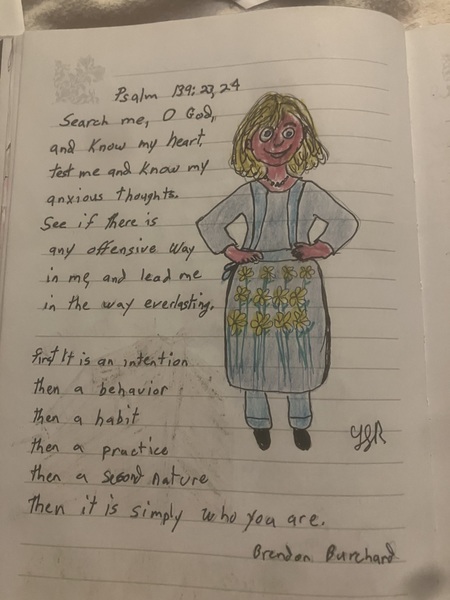 Psalm 139:23,24
Search me, O God,
and know my heart,
test me and know my
anxious thoughts.
See if there is
any offensive way
in me, and lead me
in the way everlasting.
first It is an intention
then a behavior
then a habit
then a practice
then a second nature
Then it is simply who you are.
Brendon Burchard